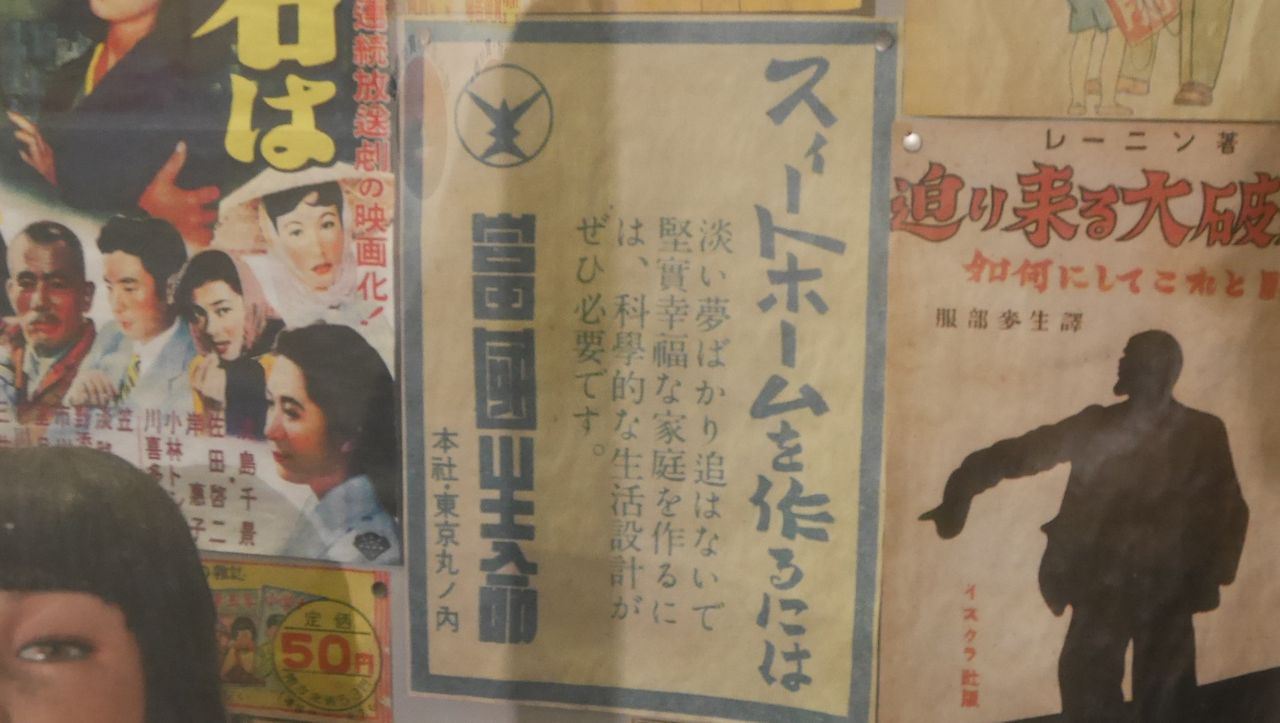 スィートホームを作るには
淡い夢ばかり追はないで
堅實幸福な家庭を作るに
は、科學的な生活設計が
ぜひ必要です。
富國生命
本社・東京丸ノ内
レーニン著
迫り来る大破
如何にしてこれと
服部麥生譯
イスクラ社版
連続放送劇の映画化!
名は
島千景
佐田啓二
岸惠子
小林ト
川喜多
笠
淡
市川
の雑誌
定価
50円